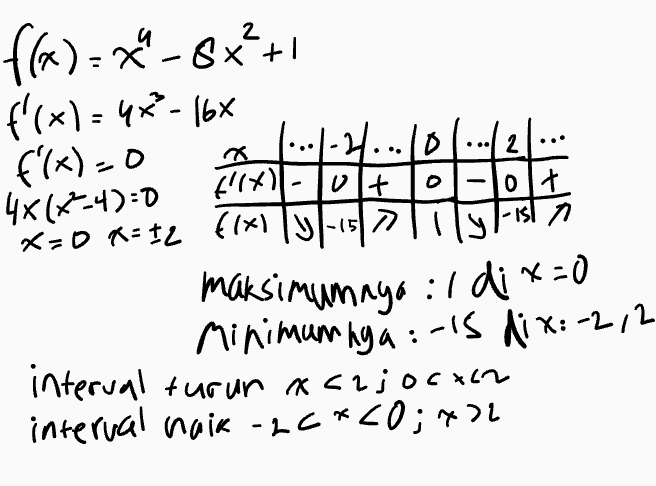 f(x) = x⁴ - 8x² + 1
f'(x) = 4x³ - 16x
f'(x) = 0
4x(x²-4)=0
x=0 x=±2
x | ... | -2 | ... | 0 | ... | 2 | ...
f'(x) | - | 0 | + | 0 | - | 0 | +
f(x) | ↘ | -15 | ↗ | 1 | ↘ | -15 | ↗
maksimumnya : 1 di x=0
minimumnya : -15 di x: -2, 2
interval turun x < 2 ; 0 < x < 2
interval naik -2 < x < 0 ; x > 2